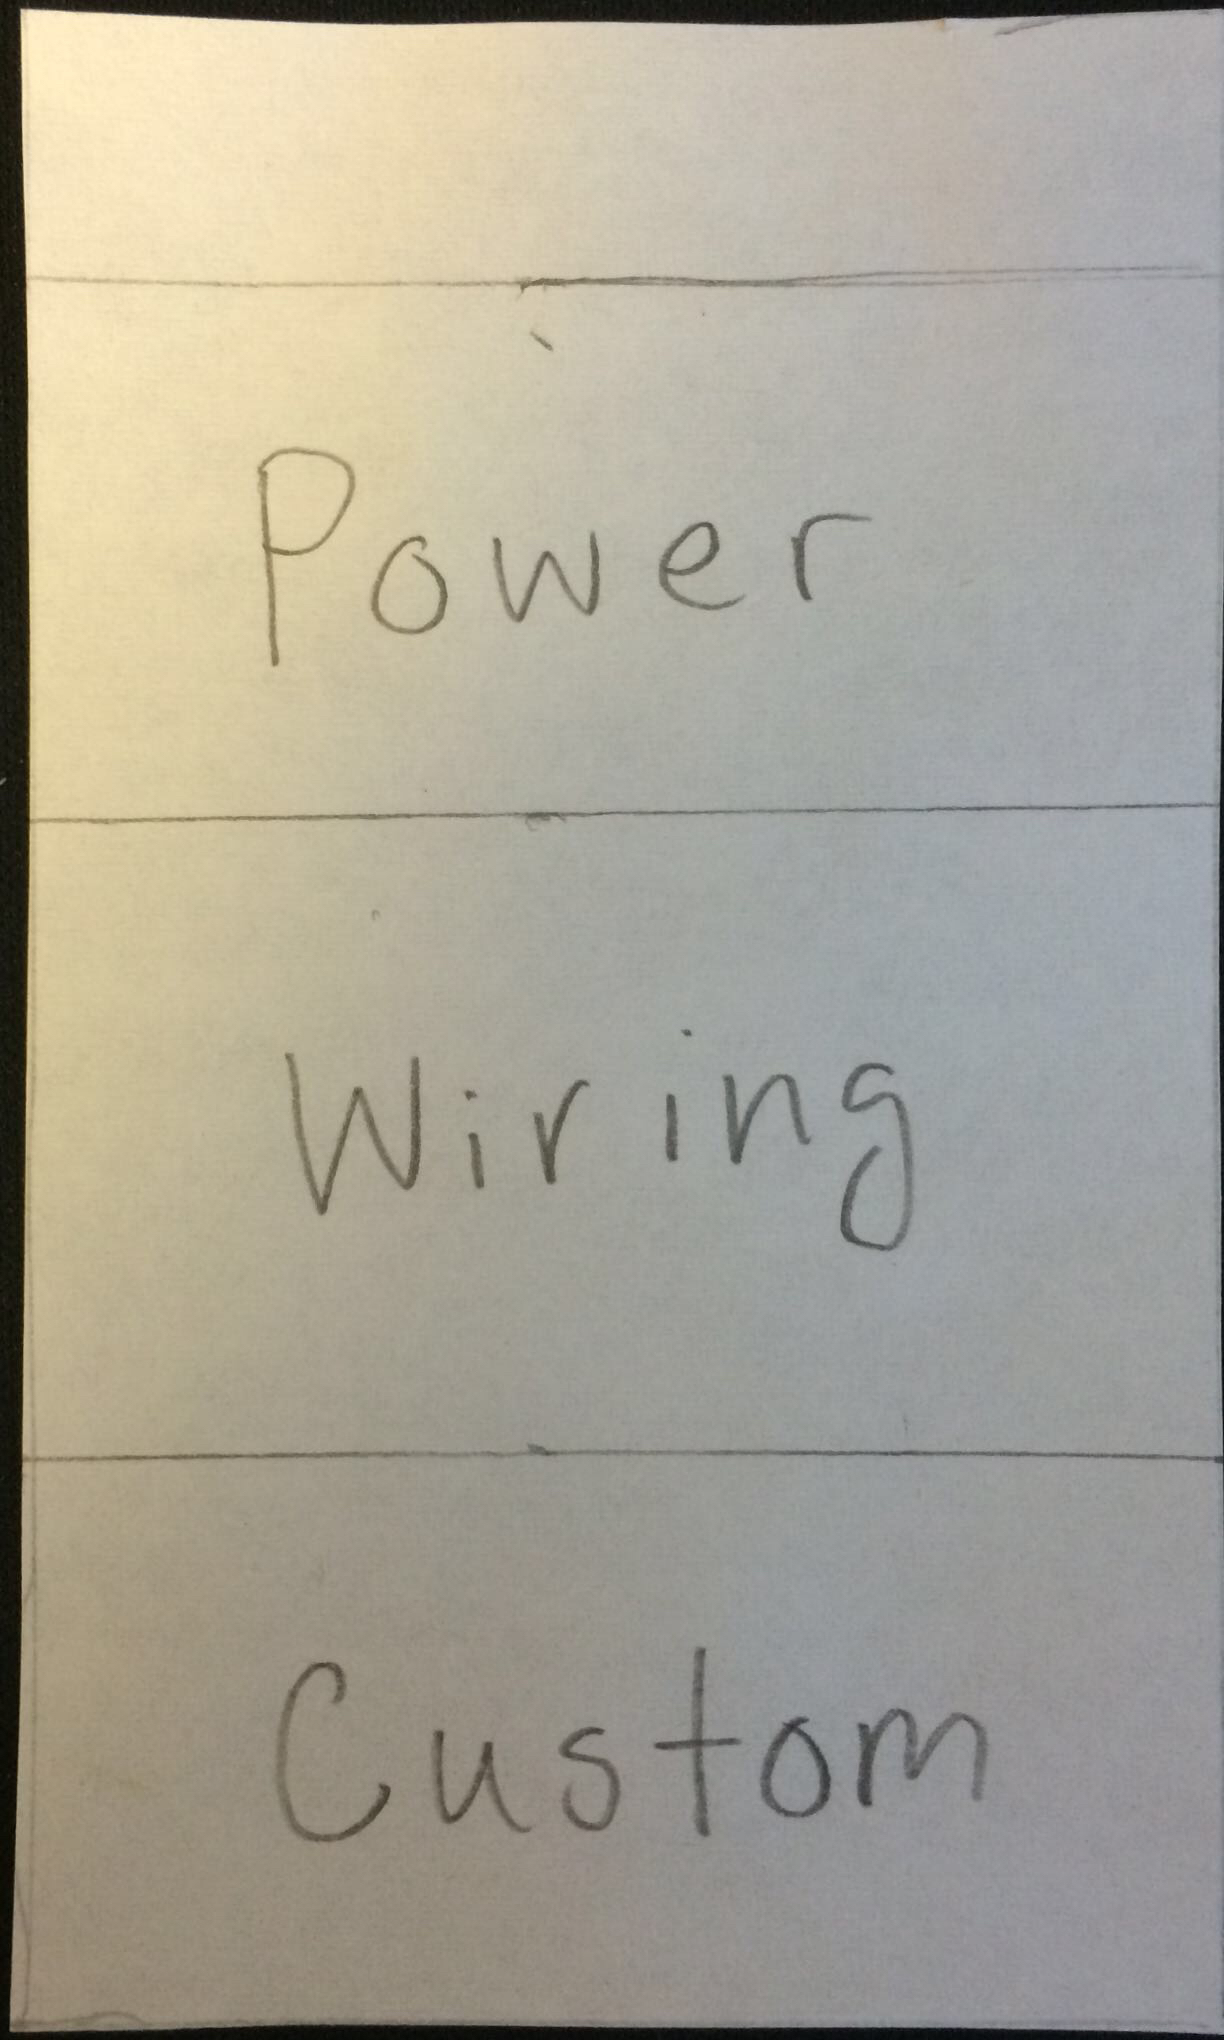 Power
Wiring
Custom